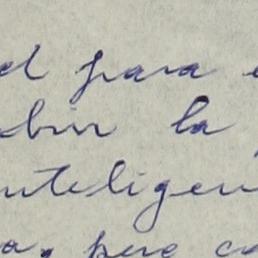 el para
bir la
nteligen
a, pero co